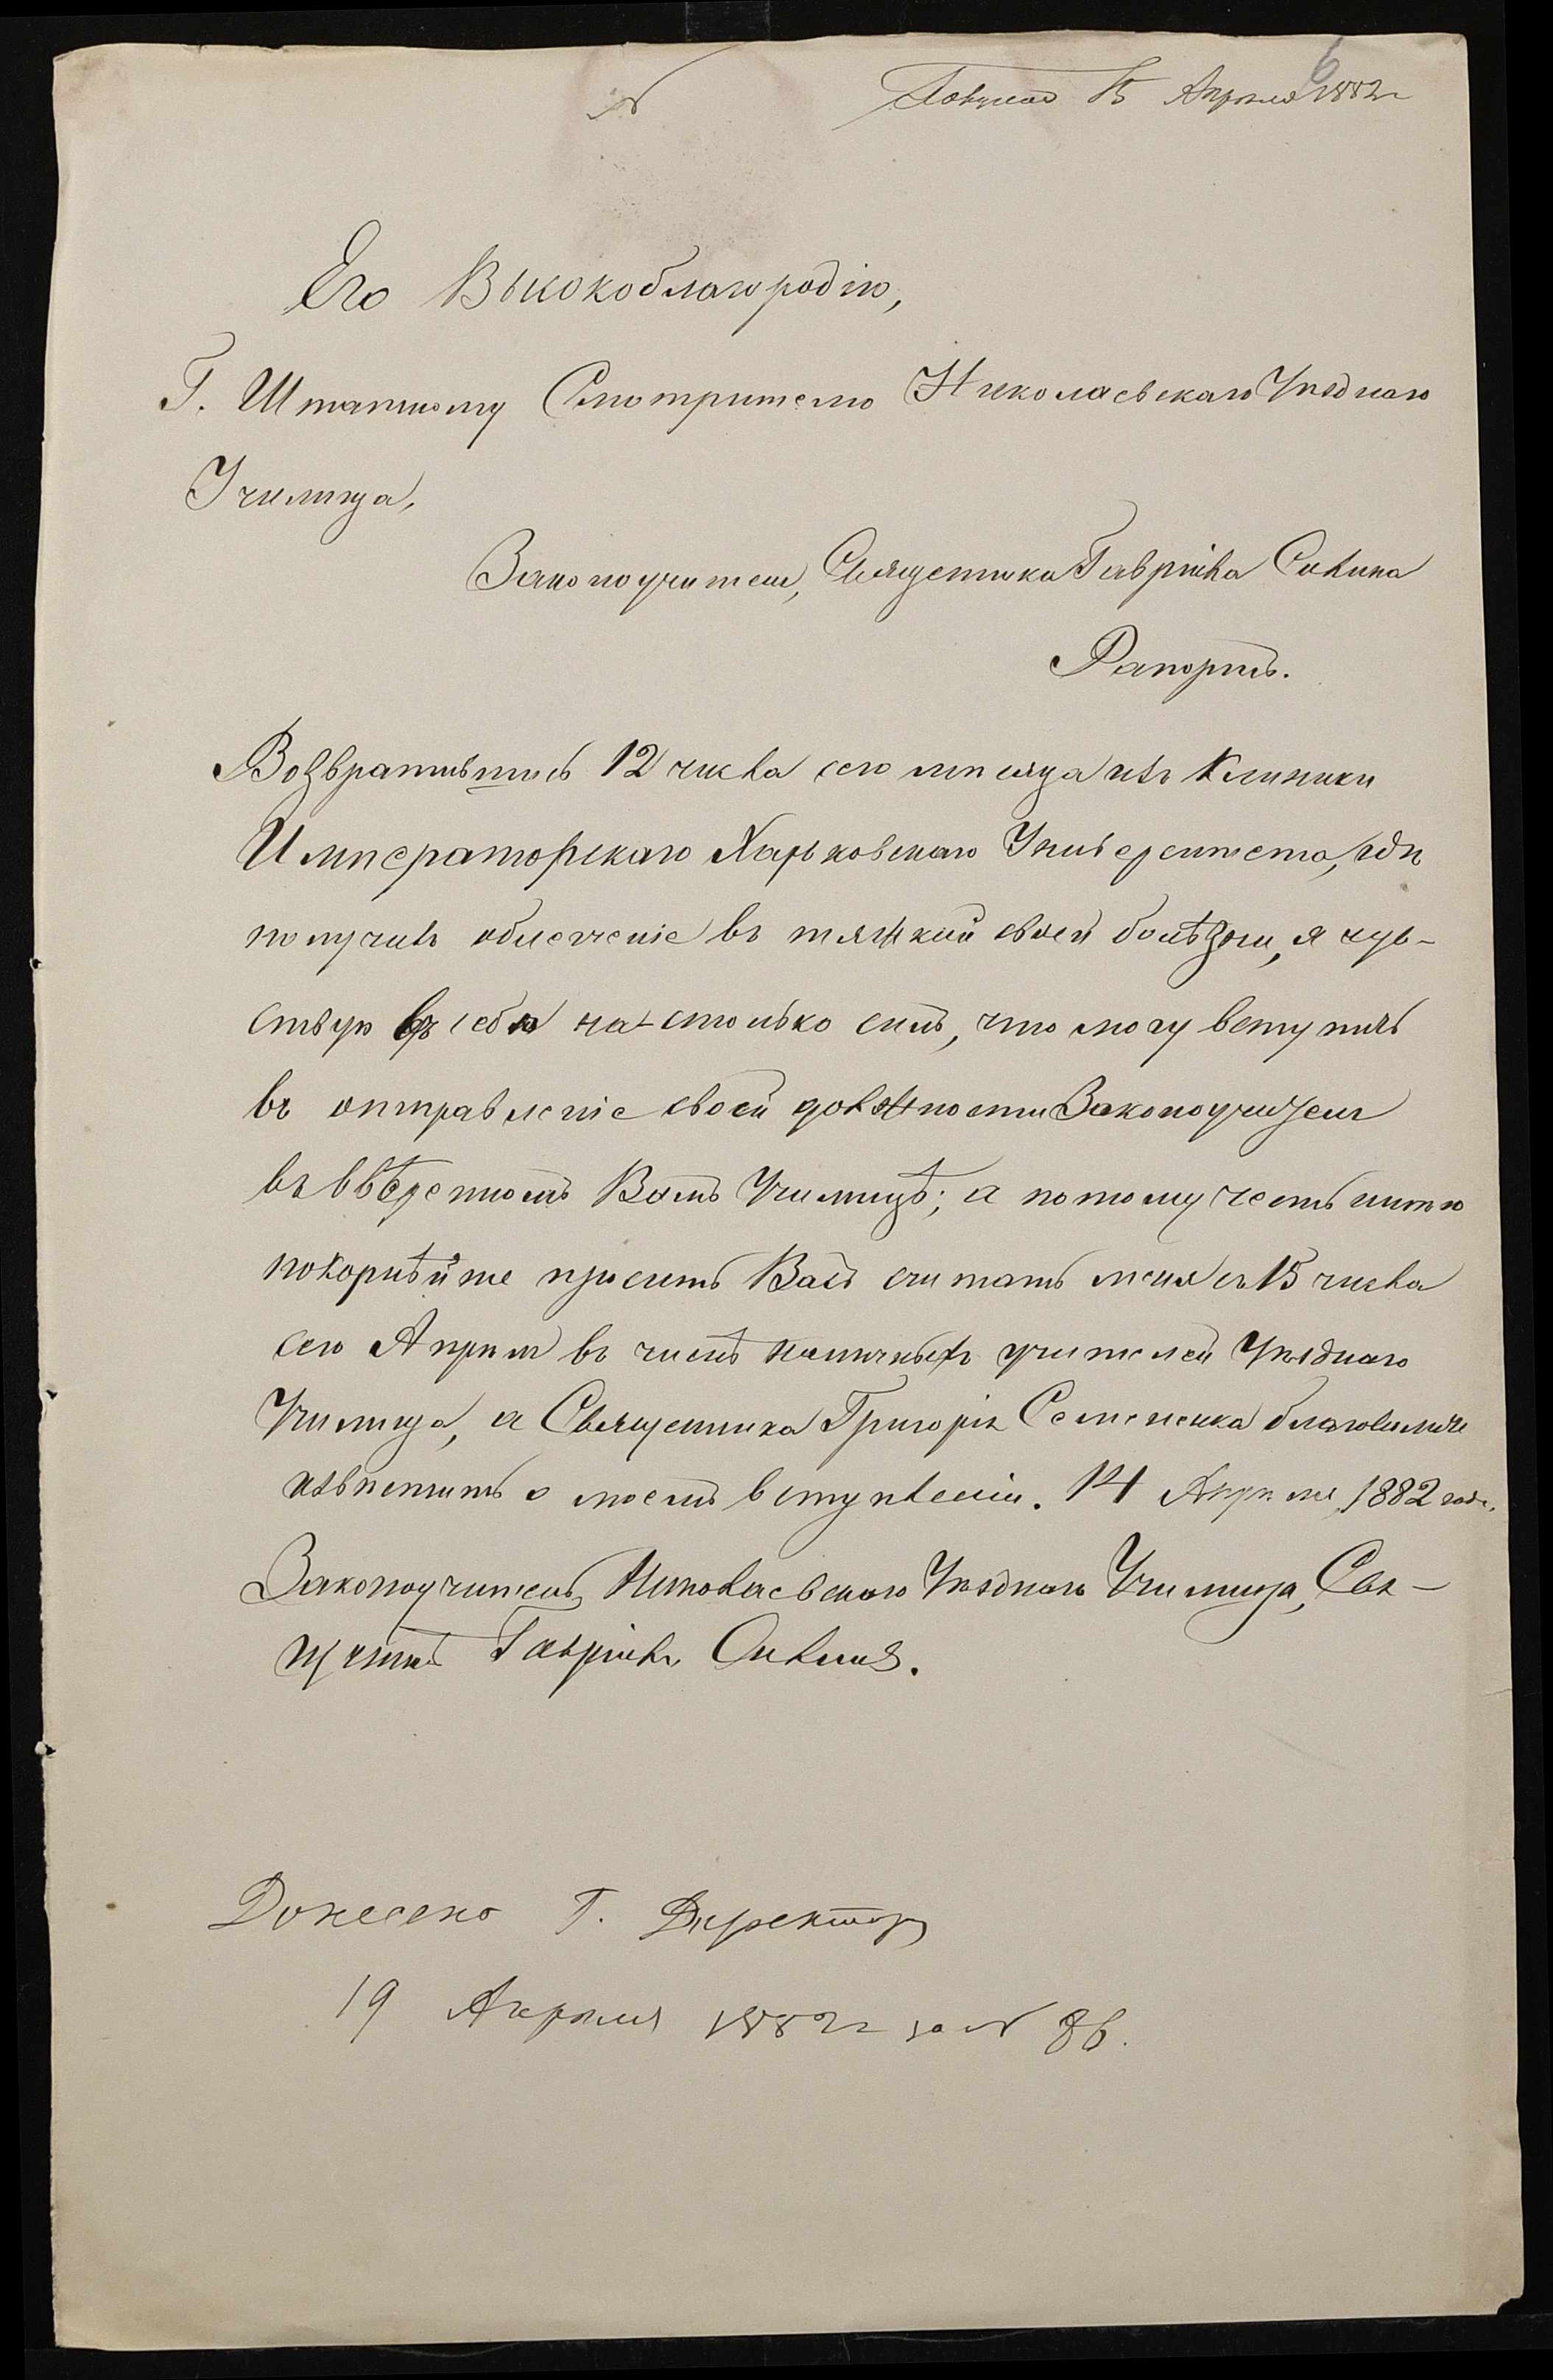 6
№ Получено 15 Апрѣля 1882 г
Его Высокоблагородію,
Г. Штатному Смотрителю Николаевскаго Уѣзднаго
Училища,
Законоучителя, Священника Гавріила
Рапортъ.
Возвратившись 12 числа сего мѣсяца изъ Клиники
Императорскаго Харьковскаго Университета, гдѣ
получивъ облегченіе въ тяжкой своей болѣзни, я чув-
ствую въ себѣ на-столько силъ, что могу вступить
въ отправленіе своей должности Законоучителя
въ ввѣренномъ Вамъ Училищѣ; а потому честь имѣю
покорнѣйше просить Васъ считать меня съ 15 числа
сего Апрѣля въ числѣ наличныхъ учителей Уѣзднаго
Училища, а Священника Григорія Семененка благоволите
извѣстить о моемъ вступленіи. 14 Апрѣля 1882 года.
Законоучитель Николаевскаго Уѣзднаго Училища, Свя-
щенникъ Гавріилъ
Донесено Г. Директору
19 Апрѣля 1882 г за № 86.